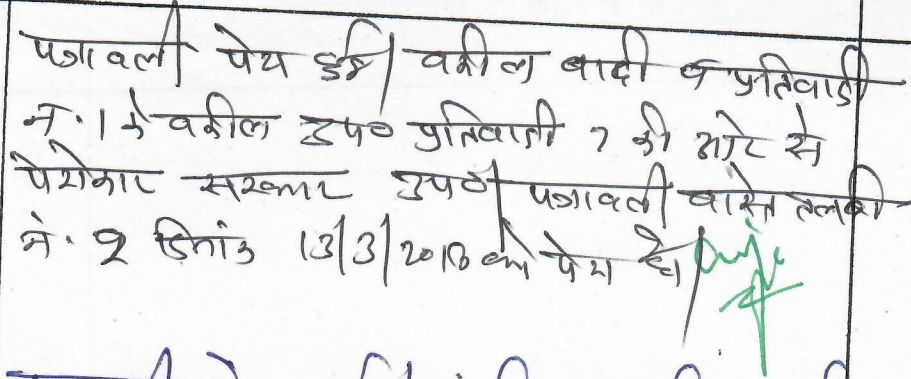 पत्रावली पेश हुई। वकील वादी व प्रतिवादी
नं. 1 के वकील उप० प्रतिवादी 7 की ओर से
पेरोकार सरकार उप०। पत्रावली वास्ते तलबी
नं. 2 दिनांक 13/3/2018 को पेश हो।